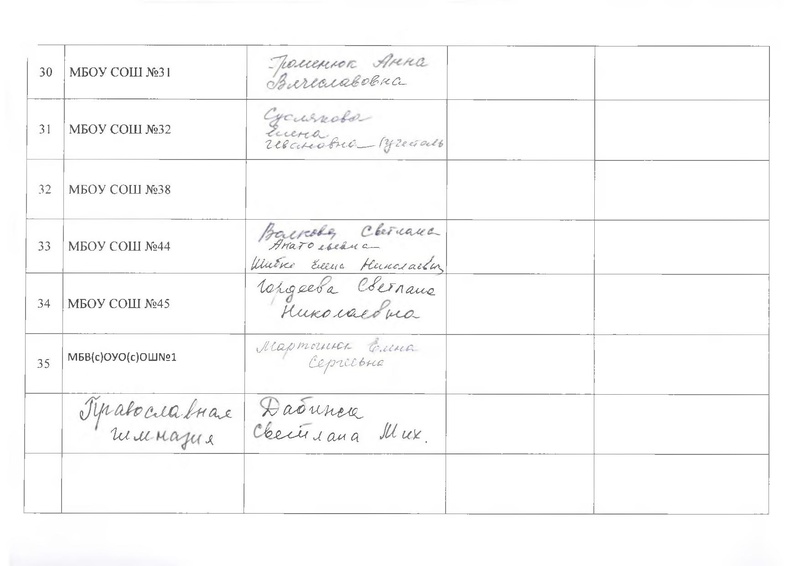 30 МБОУ СОШ №31
Анна
Вячеславовна
31 МБОУ СОШ №32
Суслякова
Елена
Ивановна учитель
32 МБОУ СОШ №38
33 МБОУ СОШ №44
Волкова Светлана
Анатольевна
Шибко Елена Николаевна
34 МБОУ СОШ №45
Гордеева Светлана
Николаевна
35 МБВ(с)ОУО(с)ОШ№1
Мартынюк Елена
Сергеевна
Православная
гимназия
Светлана Мих.